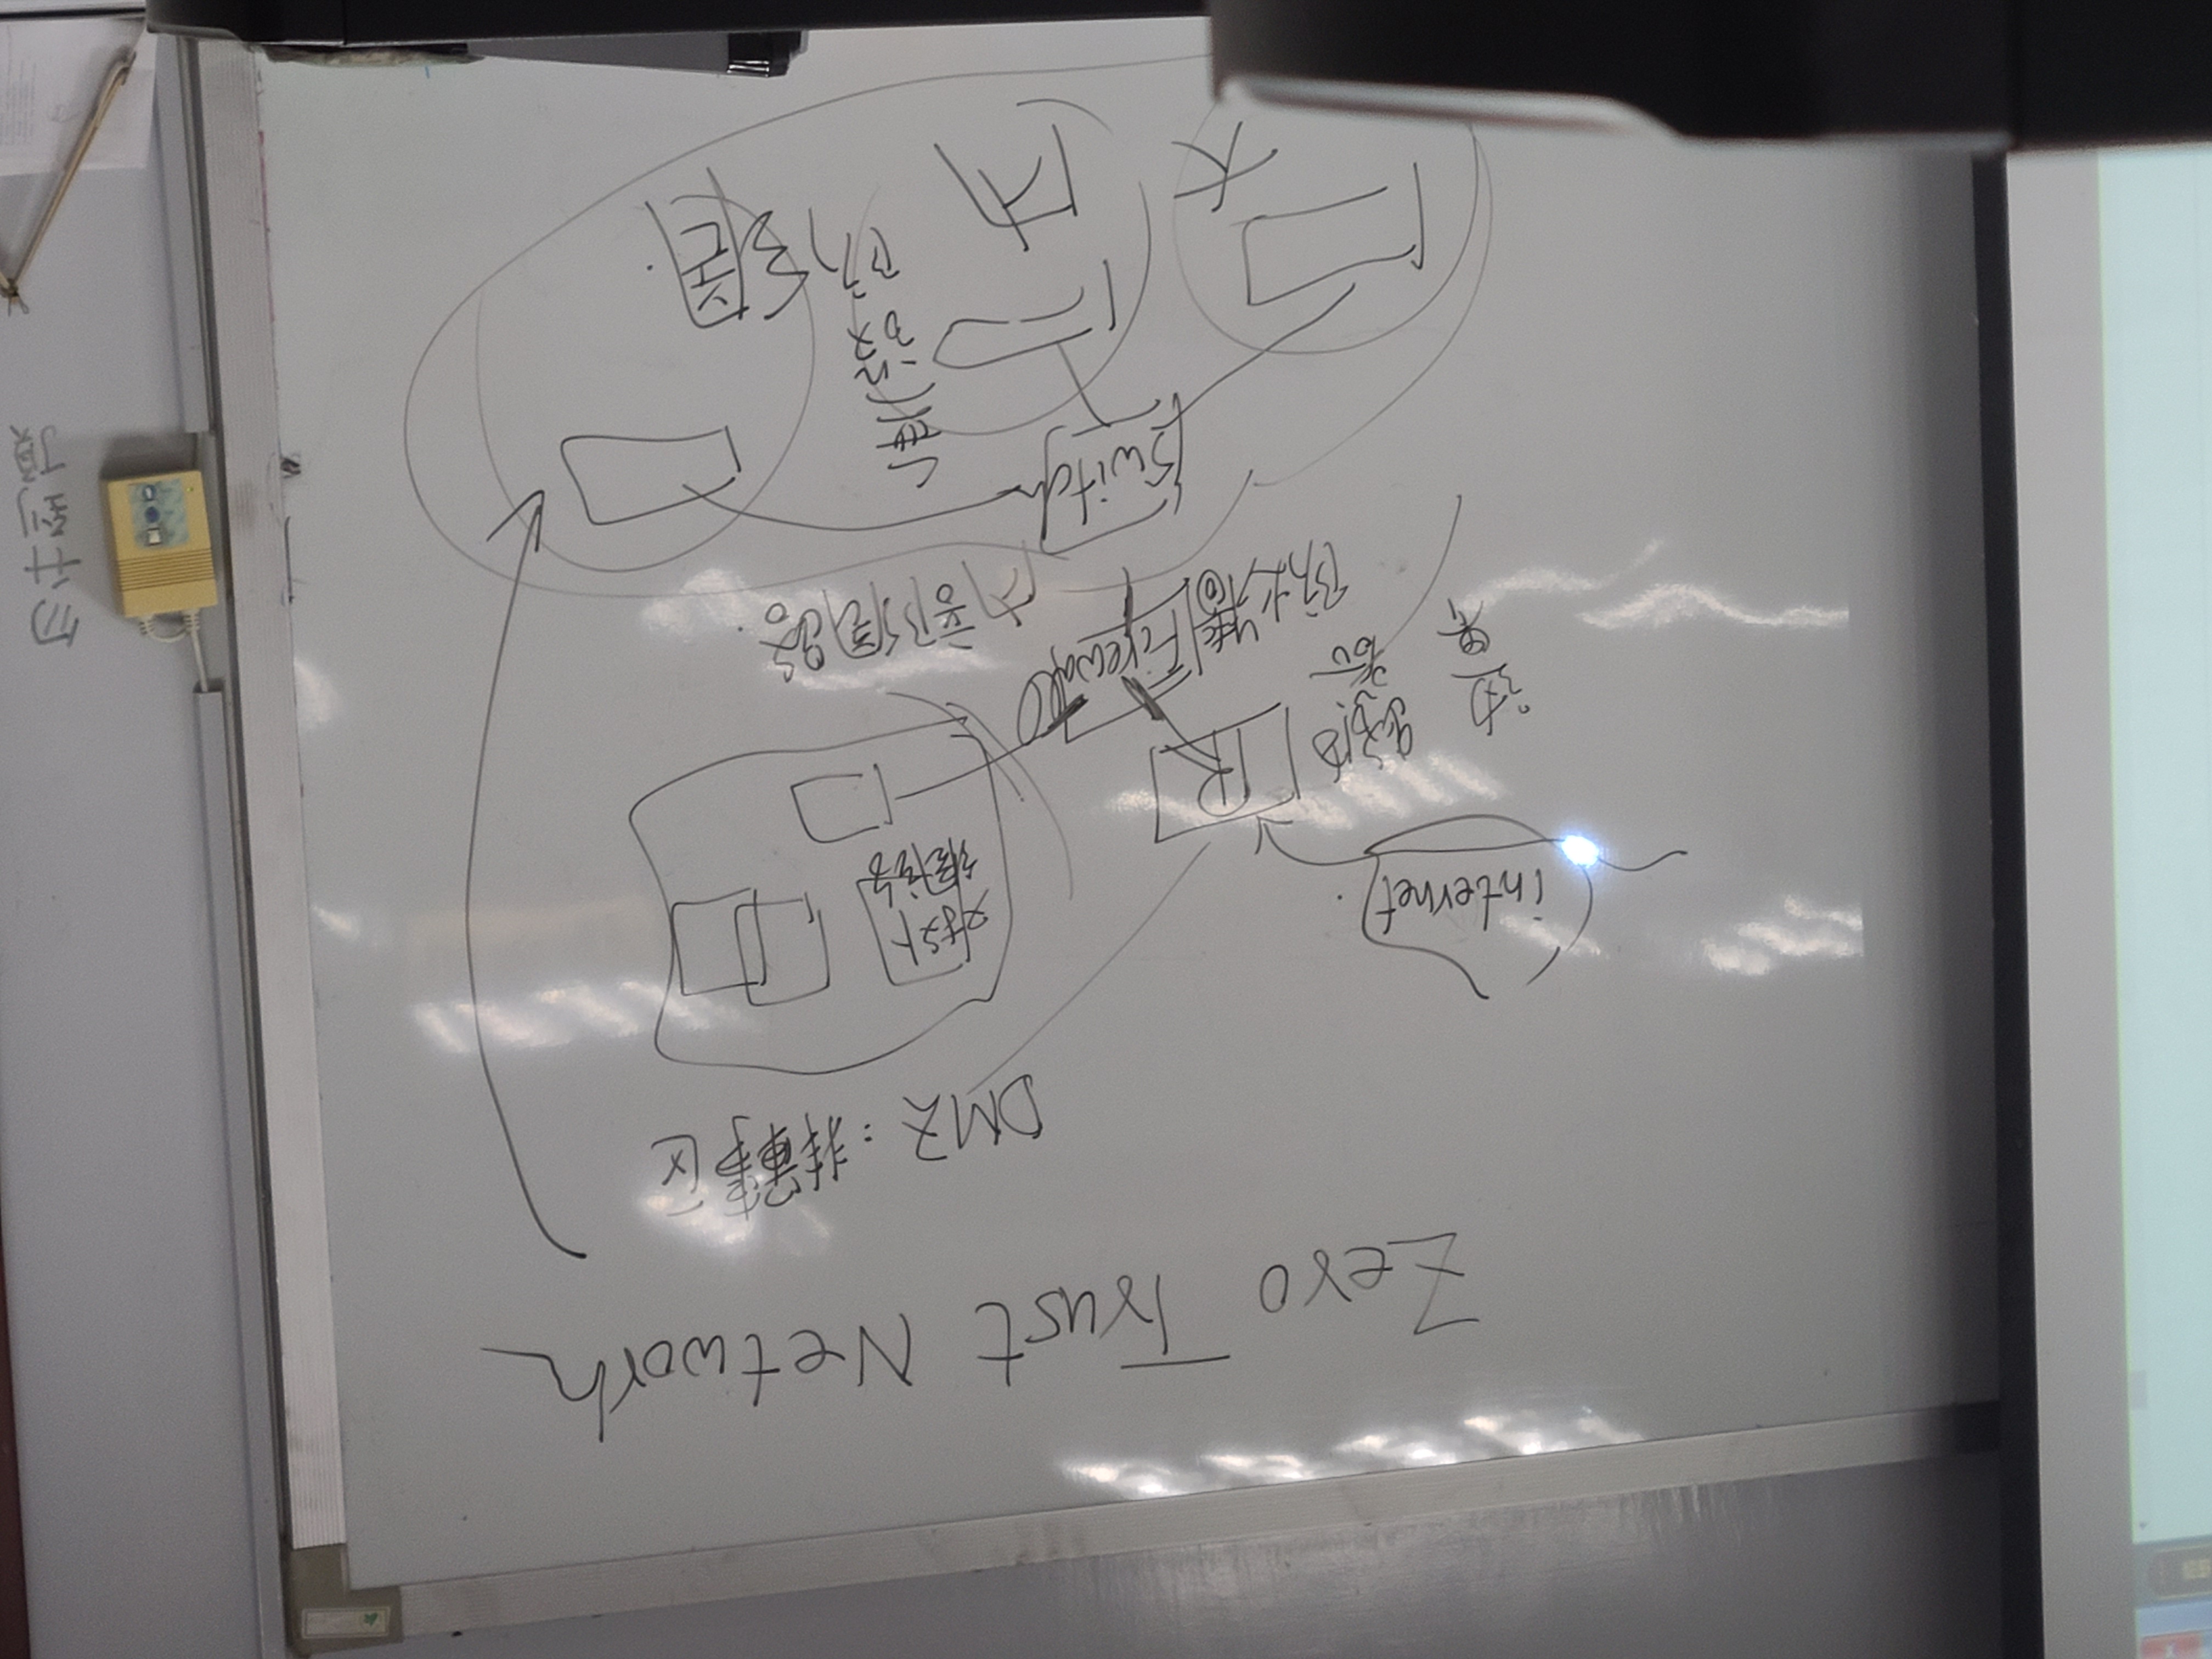 Zero Trust Network
DMZ：非軍事区
internet
对外
網路
R
边界
路由器
防火牆
Firewall
内部網路
Switch
無設防
大
内
網
勿升到頂